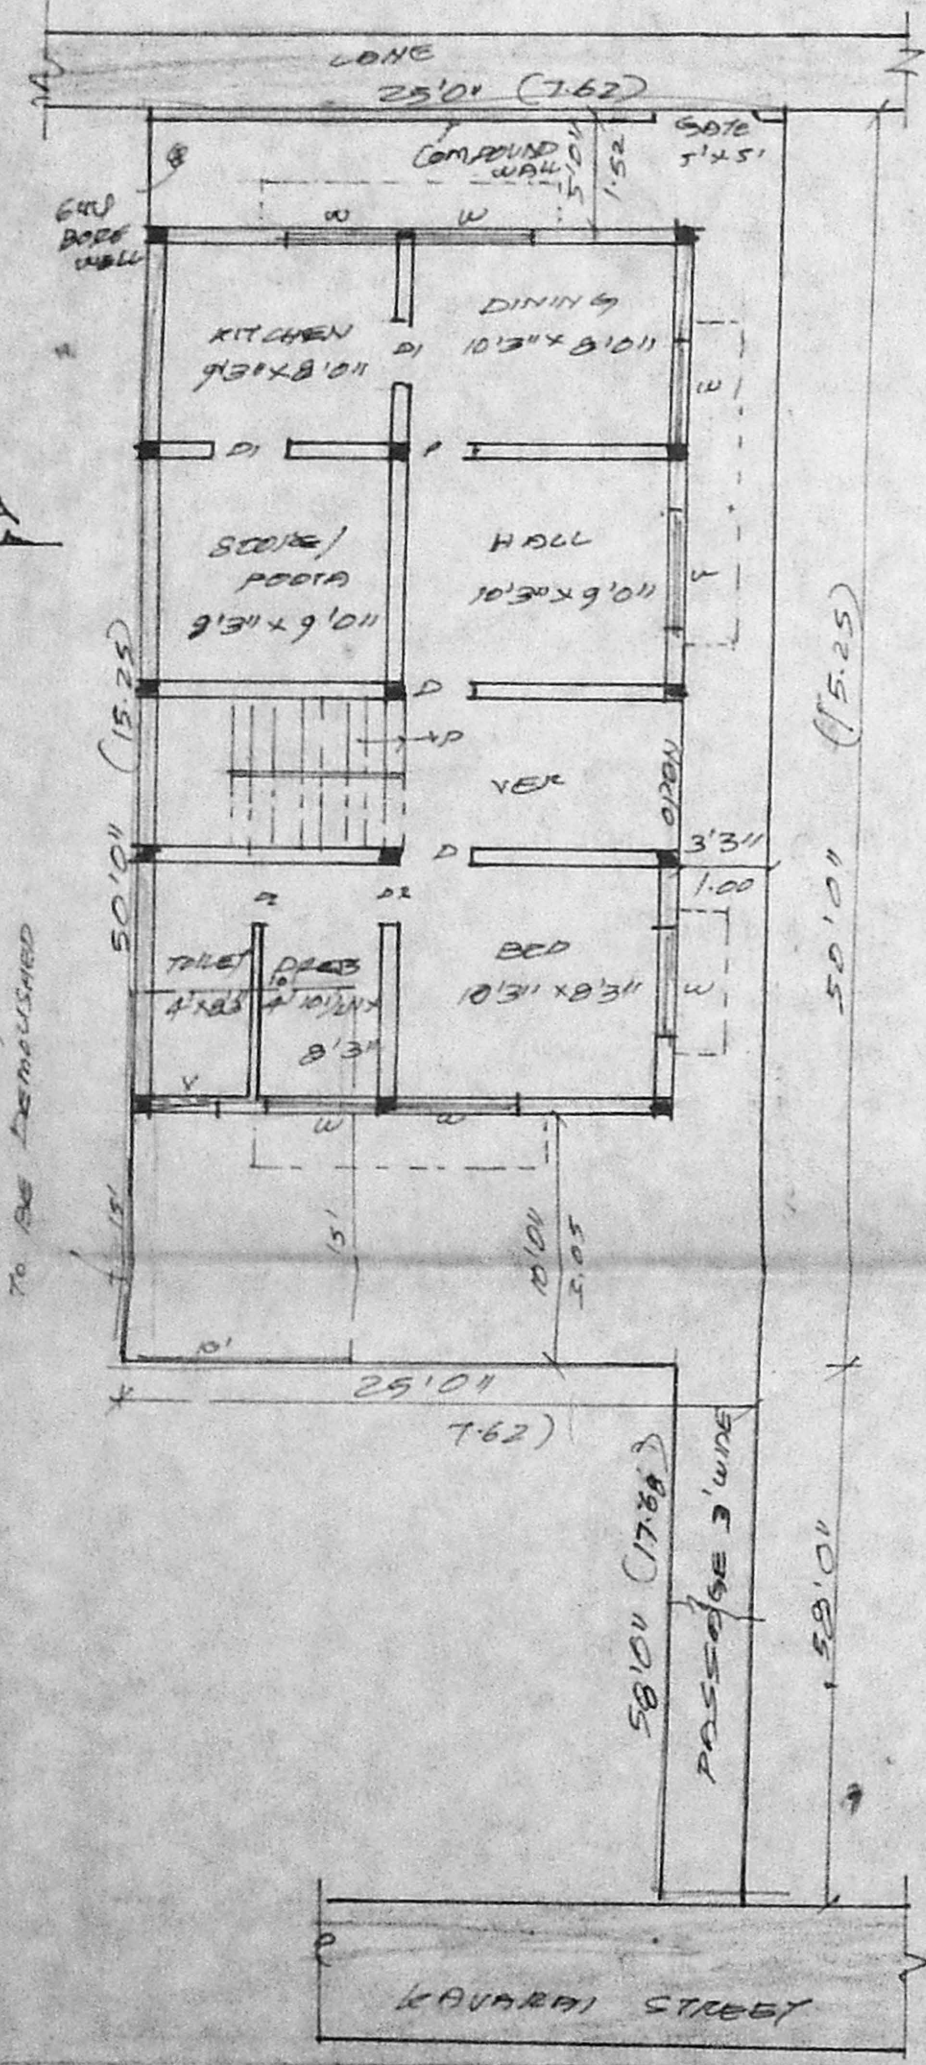 LANE
25'0" (7.62)
COMPOUND
WALL
5'0"
1.52
GATE
5'x5'
BORE
WELL
W
W
KITCHEN
9'3"x8'0"
D1
DINING
10'3"x8'0"
W
D1
STORE/
POOJA
9'3"x9'0"
HALL
10'3"x9'0"
50'0" (15.25)
50'0" (15.25)
D
UP
VER
OPEN
D
3'3"
1.00
D2
D2
TOILET
DRESS
4'10½"x
8'3"
BED
10'3"x8'3"
W
V
W
W
TO BE DEMOLISHED
15'
15'
10'0"
3.05
10'
25'0"
7.62)
58'0" (17.68)
PASSAGE 3' WIDE
58'0"
KAVARAI STREET